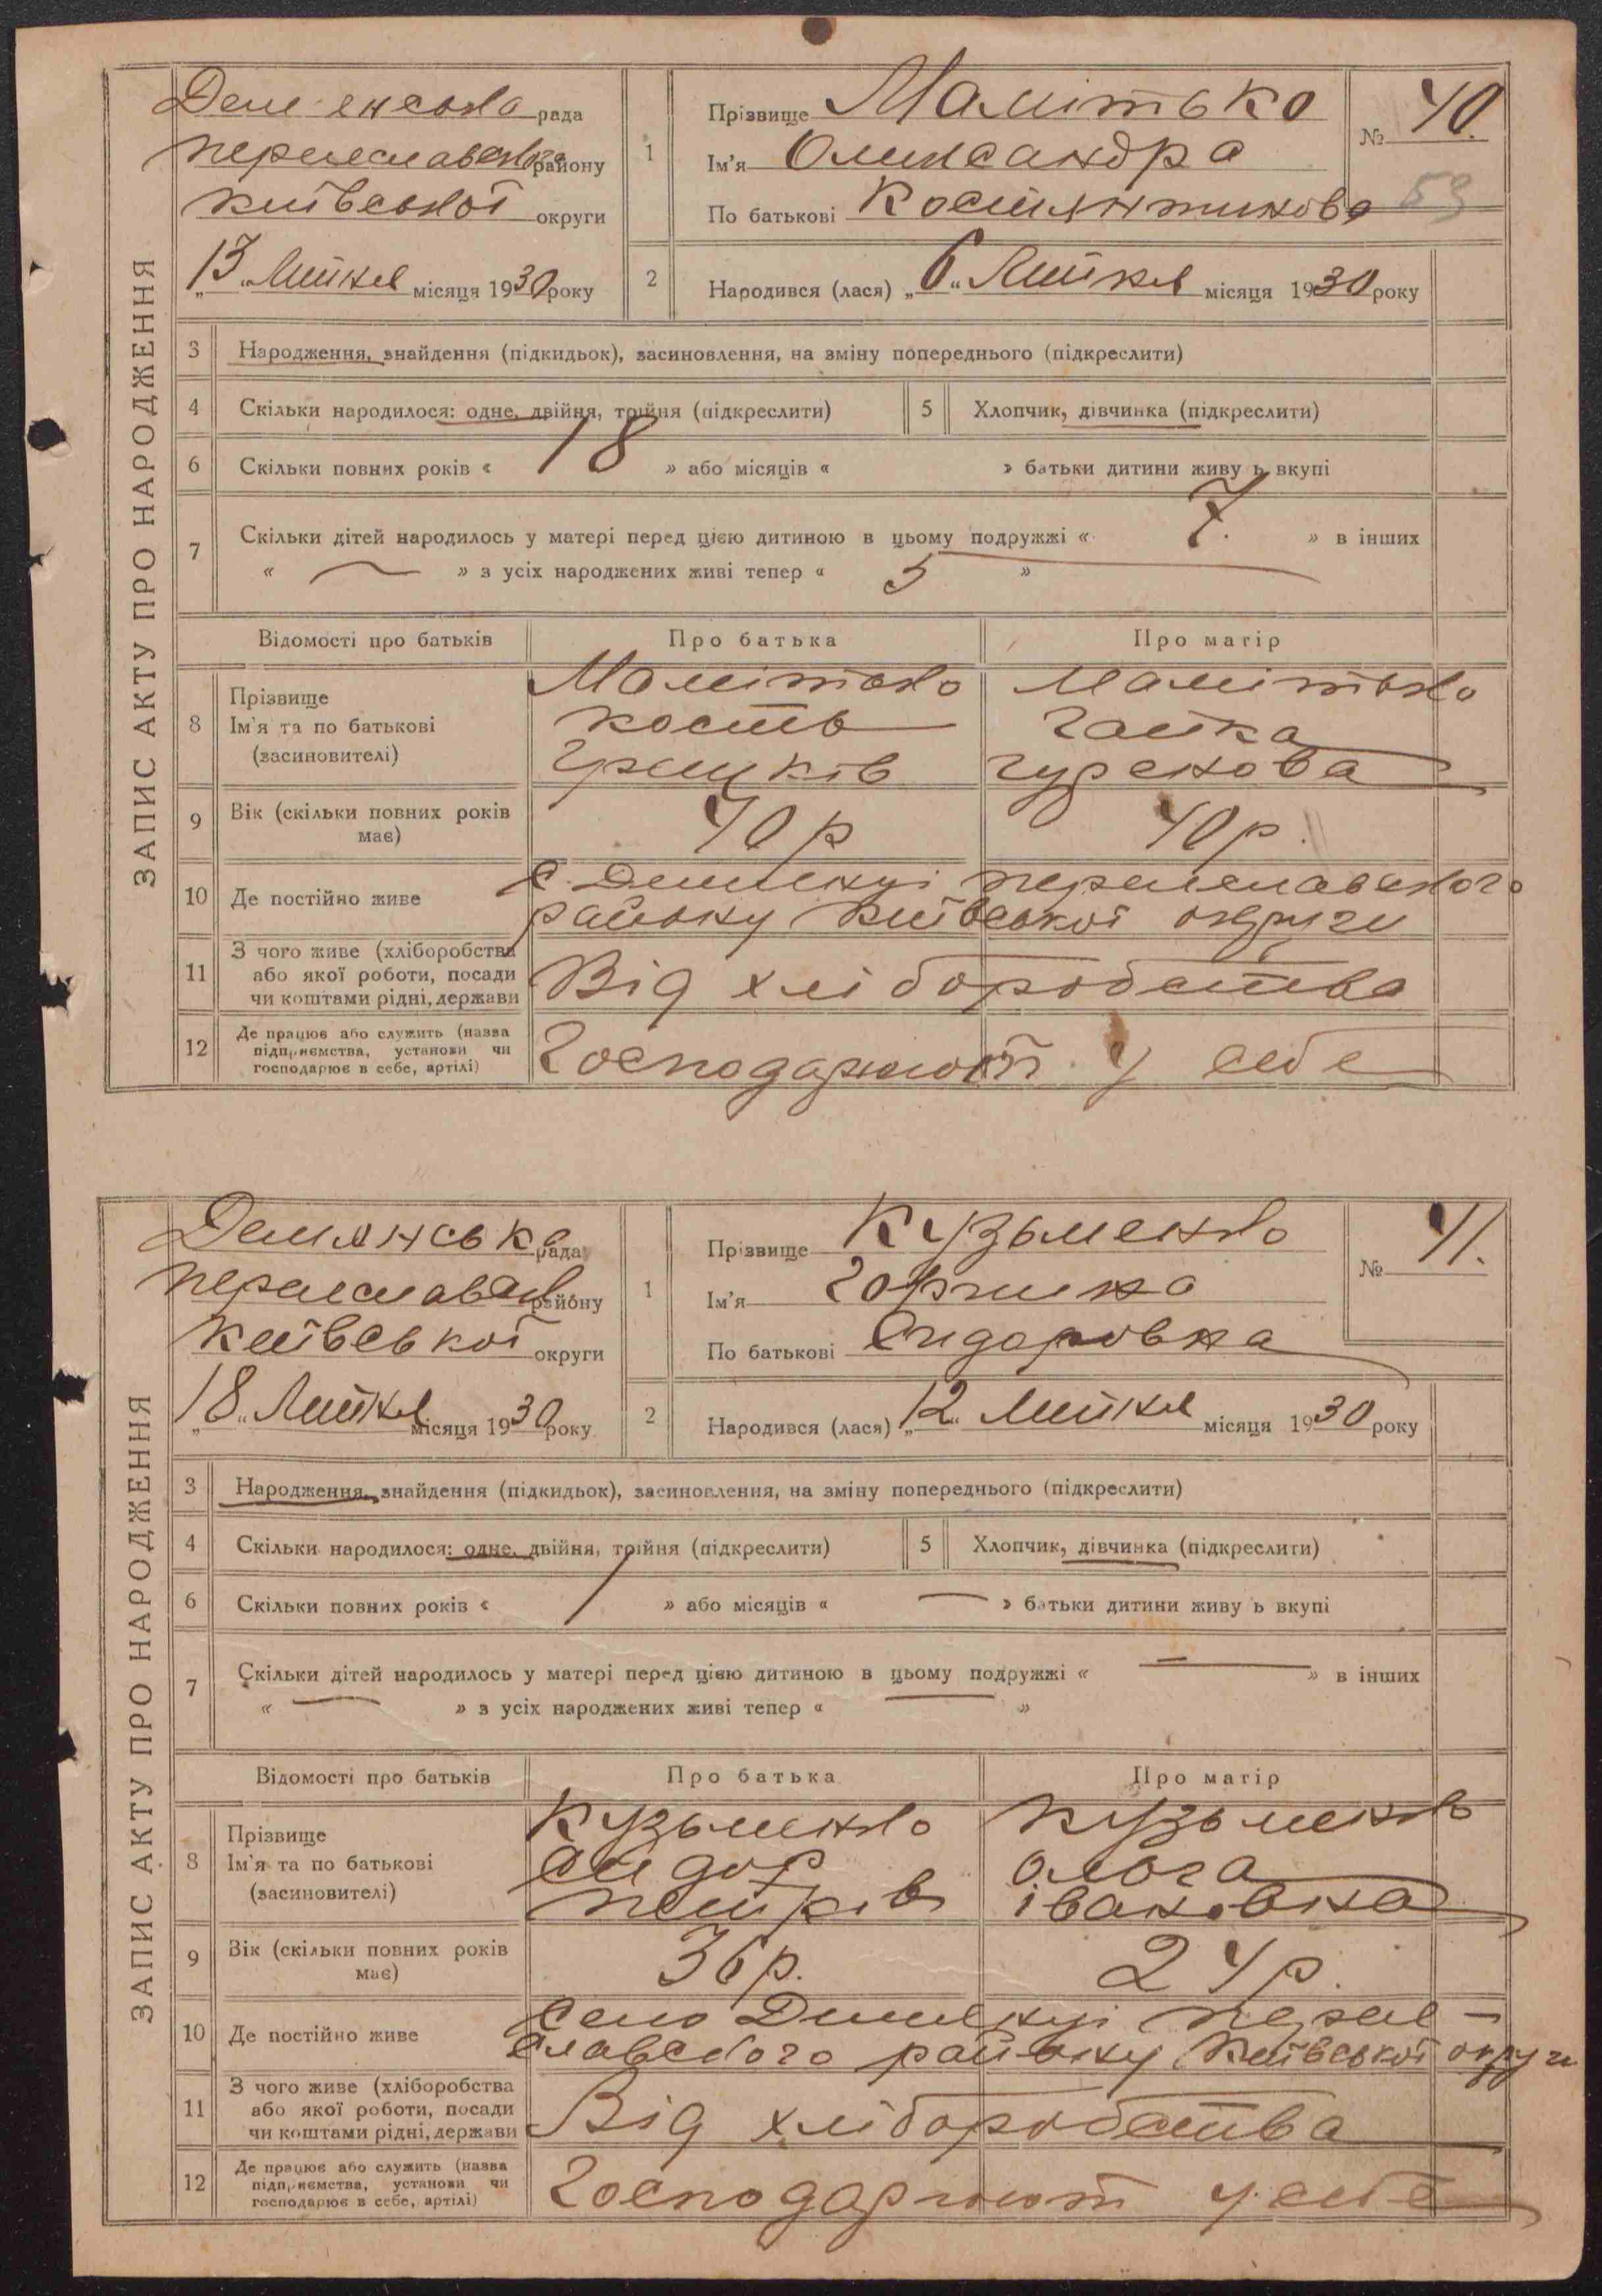 ЗАПИС АКТУ ПРО НАРОДЖЕННЯ
рада
району
Київської округи
„13“ Липня місяця 1930 року
1
Прізвище Малітько
Ім'я Олександра
По батькові Костянтинова
№ 40.
59
2
Народився (лася) „6“ Липня місяця 1930 року
3 Народження, знайдення (підкидьок), засиновлення, на зміну попереднього (підкреслити)
4 Скільки народилося: одне, двійня, трійня (підкреслити) 5 Хлопчик, дівчинка (підкреслити)
6 Скільки повних років « 18 » або місяців « » батьки дитини живу ь вкупі
7 Скільки дітей народилось у матері перед цією дитиною в цьому подружжі « 7. » в інших
« — » з усіх народжених живі тепер « 5 »
Відомості про батьків Про батька Про матір
8 Прізвище
Ім'я та по батькові
(засиновителі)
Малітько
Кость
Грицьків
Малітько
Гапка
9 Вік (скільки повних років має) 40 р 40 р.
10 Де постійно живе
с. Демʼянці Переяславського
району Київської округи
11 З чого живе (хліборобства
або якої роботи, посади
чи коштами рідні, держави
Від хліборобства
12 Де працює або служить (назва
підприємства, установи чи
господарює в себе, артілі)
Господарюют у себе
ЗАПИС АКТУ ПРО НАРОДЖЕННЯ
Демянська рада
району
Київської округи
„18“ Липня місяця 1930 року
1
Прізвище Кузьменко
Ім'я
По батькові Сидоровна
№ 41.
2
Народився (лася) „12“ Липня місяця 1930 року
3 Народження, знайдення (підкидьок), засиновлення, на зміну попереднього (підкреслити)
4 Скільки народилося: одне, двійня, трійня (підкреслити) 5 Хлопчик, дівчинка (підкреслити)
6 Скільки повних років « 1 » або місяців « — » батьки дитини живу ь вкупі
7 Скільки дітей народилось у матері перед цією дитиною в цьому подружжі « — » в інших
« — » з усіх народжених живі тепер « — »
Відомості про батьків Про батька Про матір
8 Прізвище
Ім'я та по батькові
(засиновителі)
Кузьменко
Сидор
Петрів
Кузьменко
Ольга
Івановна
9 Вік (скільки повних років має) 36 р. 24 р.
10 Де постійно живе
Село Демʼянці Переяс-
славського району Київської округи
11 З чого живе (хліборобства
або якої роботи, посади
чи коштами рідні, держави
Від хліборобства
12 Де працює або служить (назва
підприємства, установи чи
господарює в себе, артілі)
Господарюют у себе